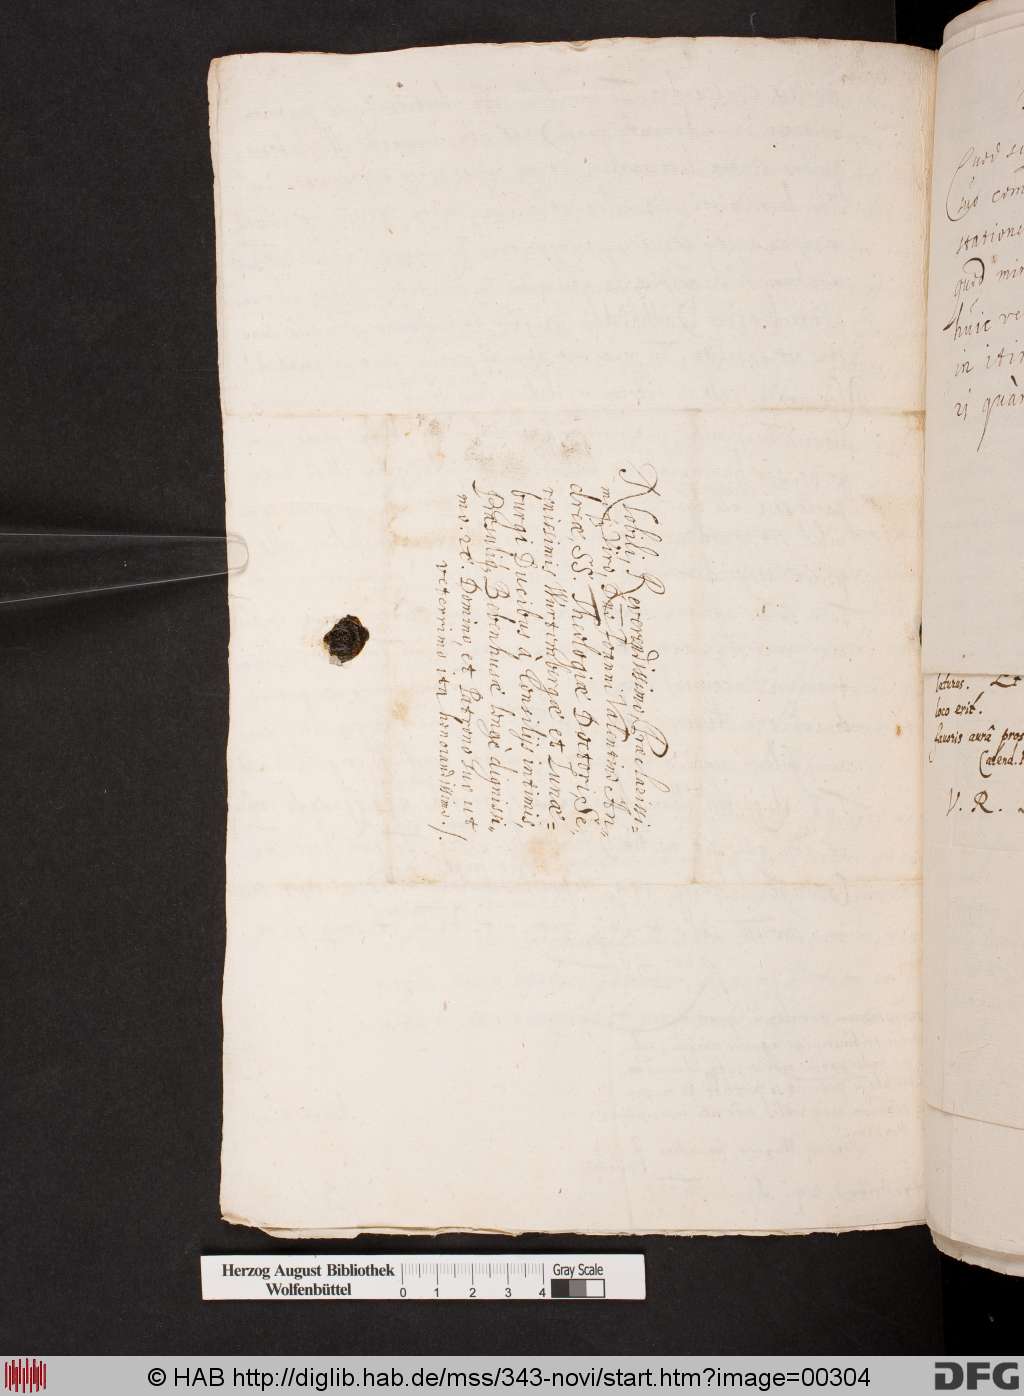 Nobili, Reverendissimo, Præclarissi=
moq́ Viro, Dno Joanni Valentino An,,
dreæ, SS. Theologiæ Doctori, Se,,
renissimis Würtembergæ et Lunæ=
burgi Ducibus à Consilijs intimis,
Præsuliq́ Bebenhusæ longè dignissi,,
mo. ꝛc. Domino, et Patrono suo ut
veterrimo ita honorandissimo./.
Quod
suo
statione
quod
huic
in
ri quàm
laturus. Et
loco erit.
favoris aurâ
Calend.
V. R.
Herzog August Bibliothek
Wolfenbüttel
0 1 2 3 4
Gray Scale
© HAB http://diglib.hab.de/mss/343-novi/start.htm?image=00304
DFG